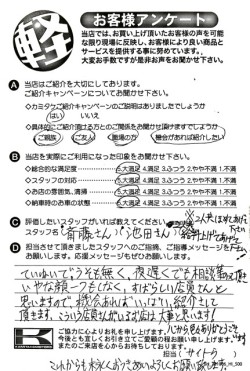 軽
お客様アンケート
当店では、お買い上げ頂いたお客様の声を可能
な限り現場に反映し、お客様により良い商品と
サービスを提供する事に努めています。
大変お手数ですが是非お声をお聞かせ下さい。
A 当店はご紹介を大切にしております。
ご紹介キャンペーンについてお聞かせ下さい。
◇カミタケご紹介キャンペーンのご説明はありましたでしょうか
はい いいえ
◇具体的にご紹介頂ける方とのご関係をお聞かせ頂けますでしょうか
ご親族 ご友人 職場の方 機会があれば紹介したい
B 当店を実際にご利用になった印象をお聞かせ下さい。
◇総合的な満足度 5大満足 4.満足 3.ふつう 2.やや不満 1.不満
◇スタッフの対応 5大満足 4.満足 3.ふつう 2.やや不満 1.不満
◇お店の雰囲気、清掃 5大満足 4.満足 3.ふつう 2.やや不満 1.不満
◇納車時のお車の状態 5大満足 4.満足 3.ふつう 2.やや不満 1.不満
C 評価したいスタッフがいれば教えてください。
スタッフ名 斉藤さん 池田さん
D 担当させて頂きましたスタッフへのご指摘、ご指導メッセージを
お願いします。応援メッセージもぜひお願いします。
ていねいでうそも無く、夜遅くでも相談
いやな顔一つもなく、すばらしい店員さんと
思いますので、機会あればいい
頂きます。こういう店員さんがいれば店は大事と思います!
ご協力に心よりお礼を申し上げます。
今後とも宜しくお引き立てご愛顧の程
またのご来店を心からお待ちしております。
担当(サイトウ)